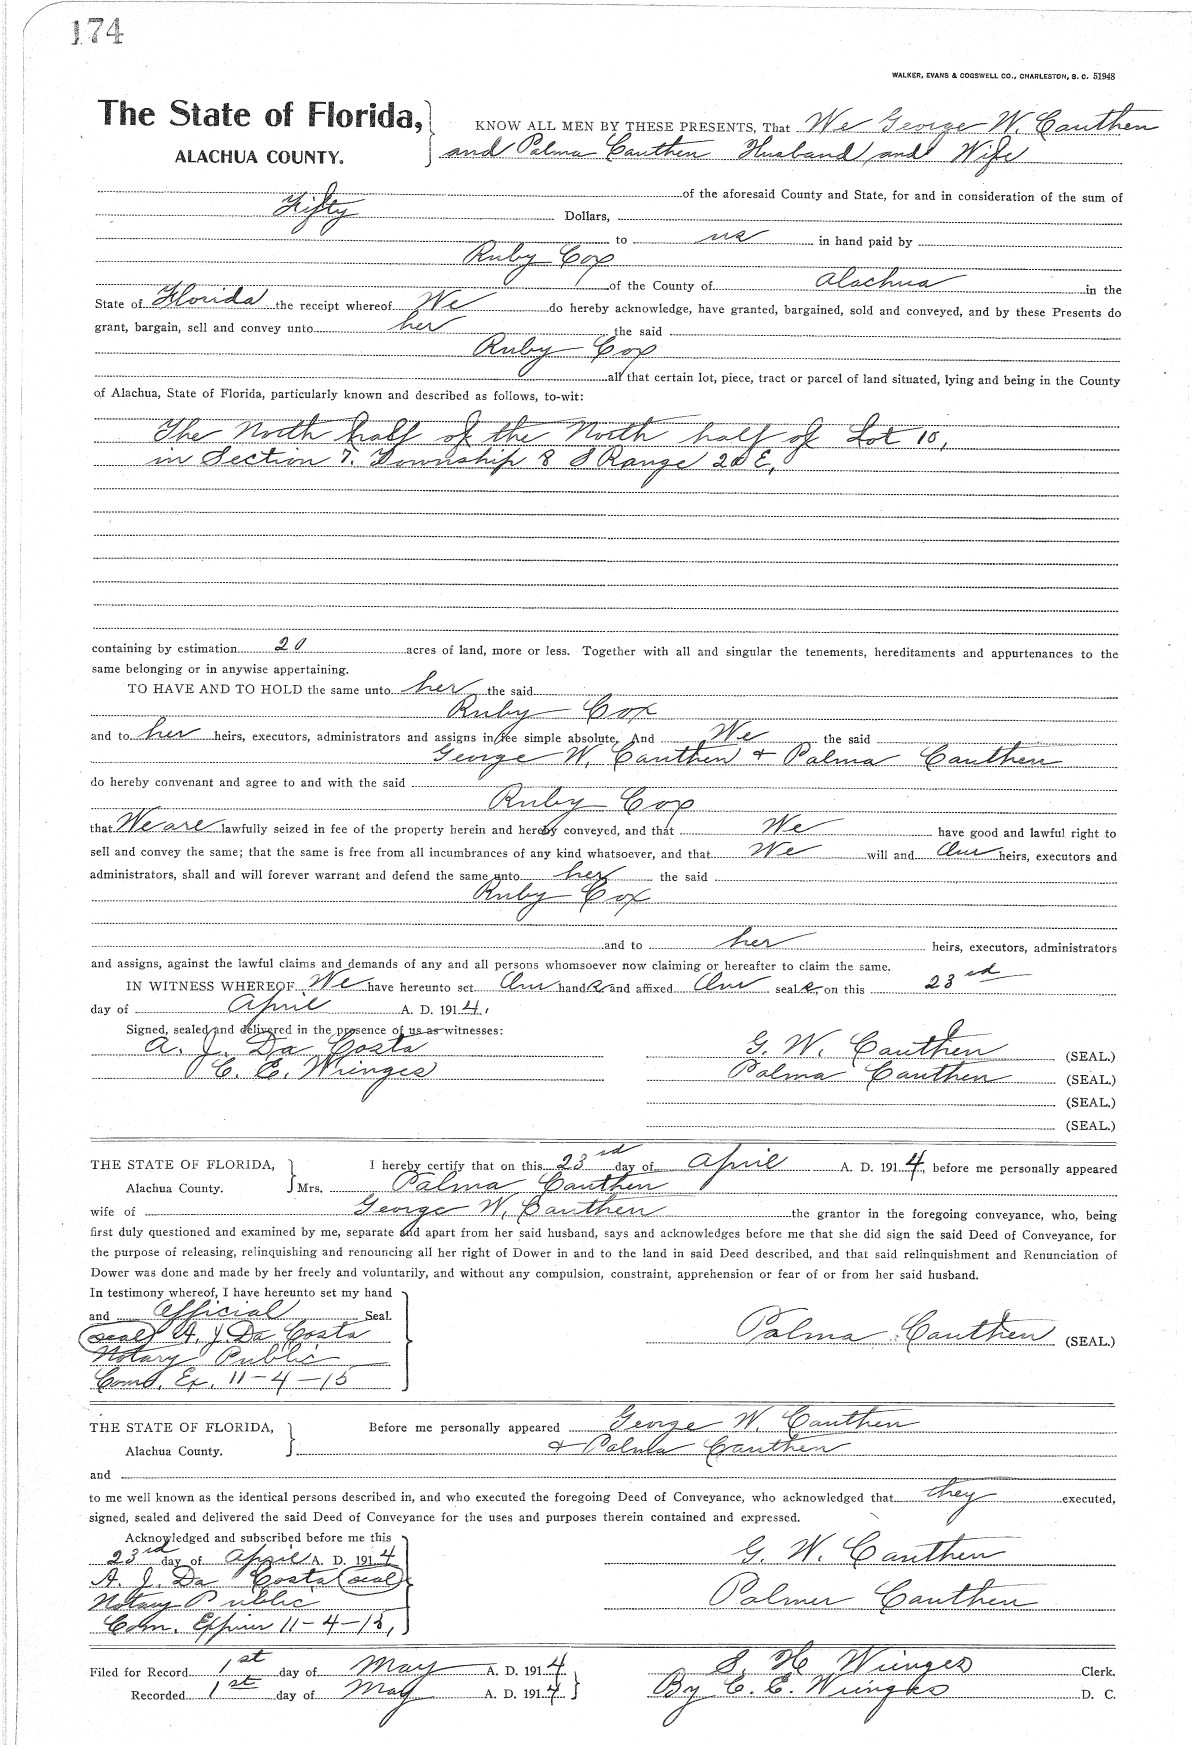 174
WALKER, EVANS & COGSWELL CO., CHARLESTON, S. C. 51948
The State of Florida,
ALACHUA COUNTY.
KNOW ALL MEN BY THESE PRESENTS, That We George W. Cauthen
and Palma Cauthen Husband and Wife
of the aforesaid County and State, for and in consideration of the sum of
Fifty Dollars,
to us in hand paid by
Ruby Cox
of the County of Alachua in the
State of Florida the receipt whereof We do hereby acknowledge, have granted, bargained, sold and conveyed, and by these Presents do
grant, bargain, sell and convey unto her the said
Ruby Cox
all that certain lot, piece, tract or parcel of land situated, lying and being in the County
of Alachua, State of Florida, particularly known and described as follows, to-wit:
The North half of the North half of Lot 10,
in Section 7. Township 8 S Range 20 E,
containing by estimation 20 acres of land, more or less. Together with all and singular the tenements, hereditaments and appurtenances to the
same belonging or in anywise appertaining.
TO HAVE AND TO HOLD the same unto her the said
Ruby Cox
and to her heirs, executors, administrators and assigns in fee simple absolute. And We the said
George W. Cauthen + Palma Cauthen
do hereby convenant and agree to and with the said
Ruby Cox
that We are lawfully seized in fee of the property herein and hereby conveyed, and that We have good and lawful right to
sell and convey the same; that the same is free from all incumbrances of any kind whatsoever, and that We will and Our heirs, executors and
administrators, shall and will forever warrant and defend the same unto her the said
Ruby Cox
and to her heirs, executors, administrators
and assigns, against the lawful claims and demands of any and all persons whomsoever now claiming or hereafter to claim the same.
IN WITNESS WHEREOF We have hereunto set Our hands and affixed Our seals, on this 23rd
day of April A. D. 1914,
Signed, sealed and delivered in the presence of us as witnesses:
A. J. Da Costa G. W. Cauthen (SEAL.)
C. E. Wienges Palma Cauthen (SEAL.)
(SEAL.)
(SEAL.)
THE STATE OF FLORIDA, I hereby certify that on this 23rd day of April A. D. 1914, before me personally appeared
Alachua County. Mrs. Palma Cauthen
wife of George W. Cauthen the grantor in the foregoing conveyance, who, being
first duly questioned and examined by me, separate and apart from her said husband, says and acknowledges before me that she did sign the said Deed of Conveyance, for
the purpose of releasing, relinquishing and renouncing all her right of Dower in and to the land in said Deed described, and that said relinquishment and Renunciation of
Dower was done and made by her freely and voluntarily, and without any compulsion, constraint, apprehension or fear of or from her said husband.
In testimony whereof, I have hereunto set my hand
and Official Seal.
seal A. J. Da Costa Palma Cauthen (SEAL.)
Notary Public
Com. Ex. 11-4-15
THE STATE OF FLORIDA, Before me personally appeared George W. Cauthen
Alachua County. + Palma Cauthen
and
to me well known as the identical persons described in, and who executed the foregoing Deed of Conveyance, who acknowledged that they executed,
signed, sealed and delivered the said Deed of Conveyance for the uses and purposes therein contained and expressed.
Acknowledged and subscribed before me this
23rd day of April A. D. 1914 G. W. Cauthen
A. J. Da Costa seal
Notary Public Palmer Cauthen
Com. Expires 11-4-15,
Filed for Record 1st day of May A. D. 1914 S. H. Wienges Clerk.
Recorded 1st day of May A. D. 1914 By C. E. Wienges D. C.